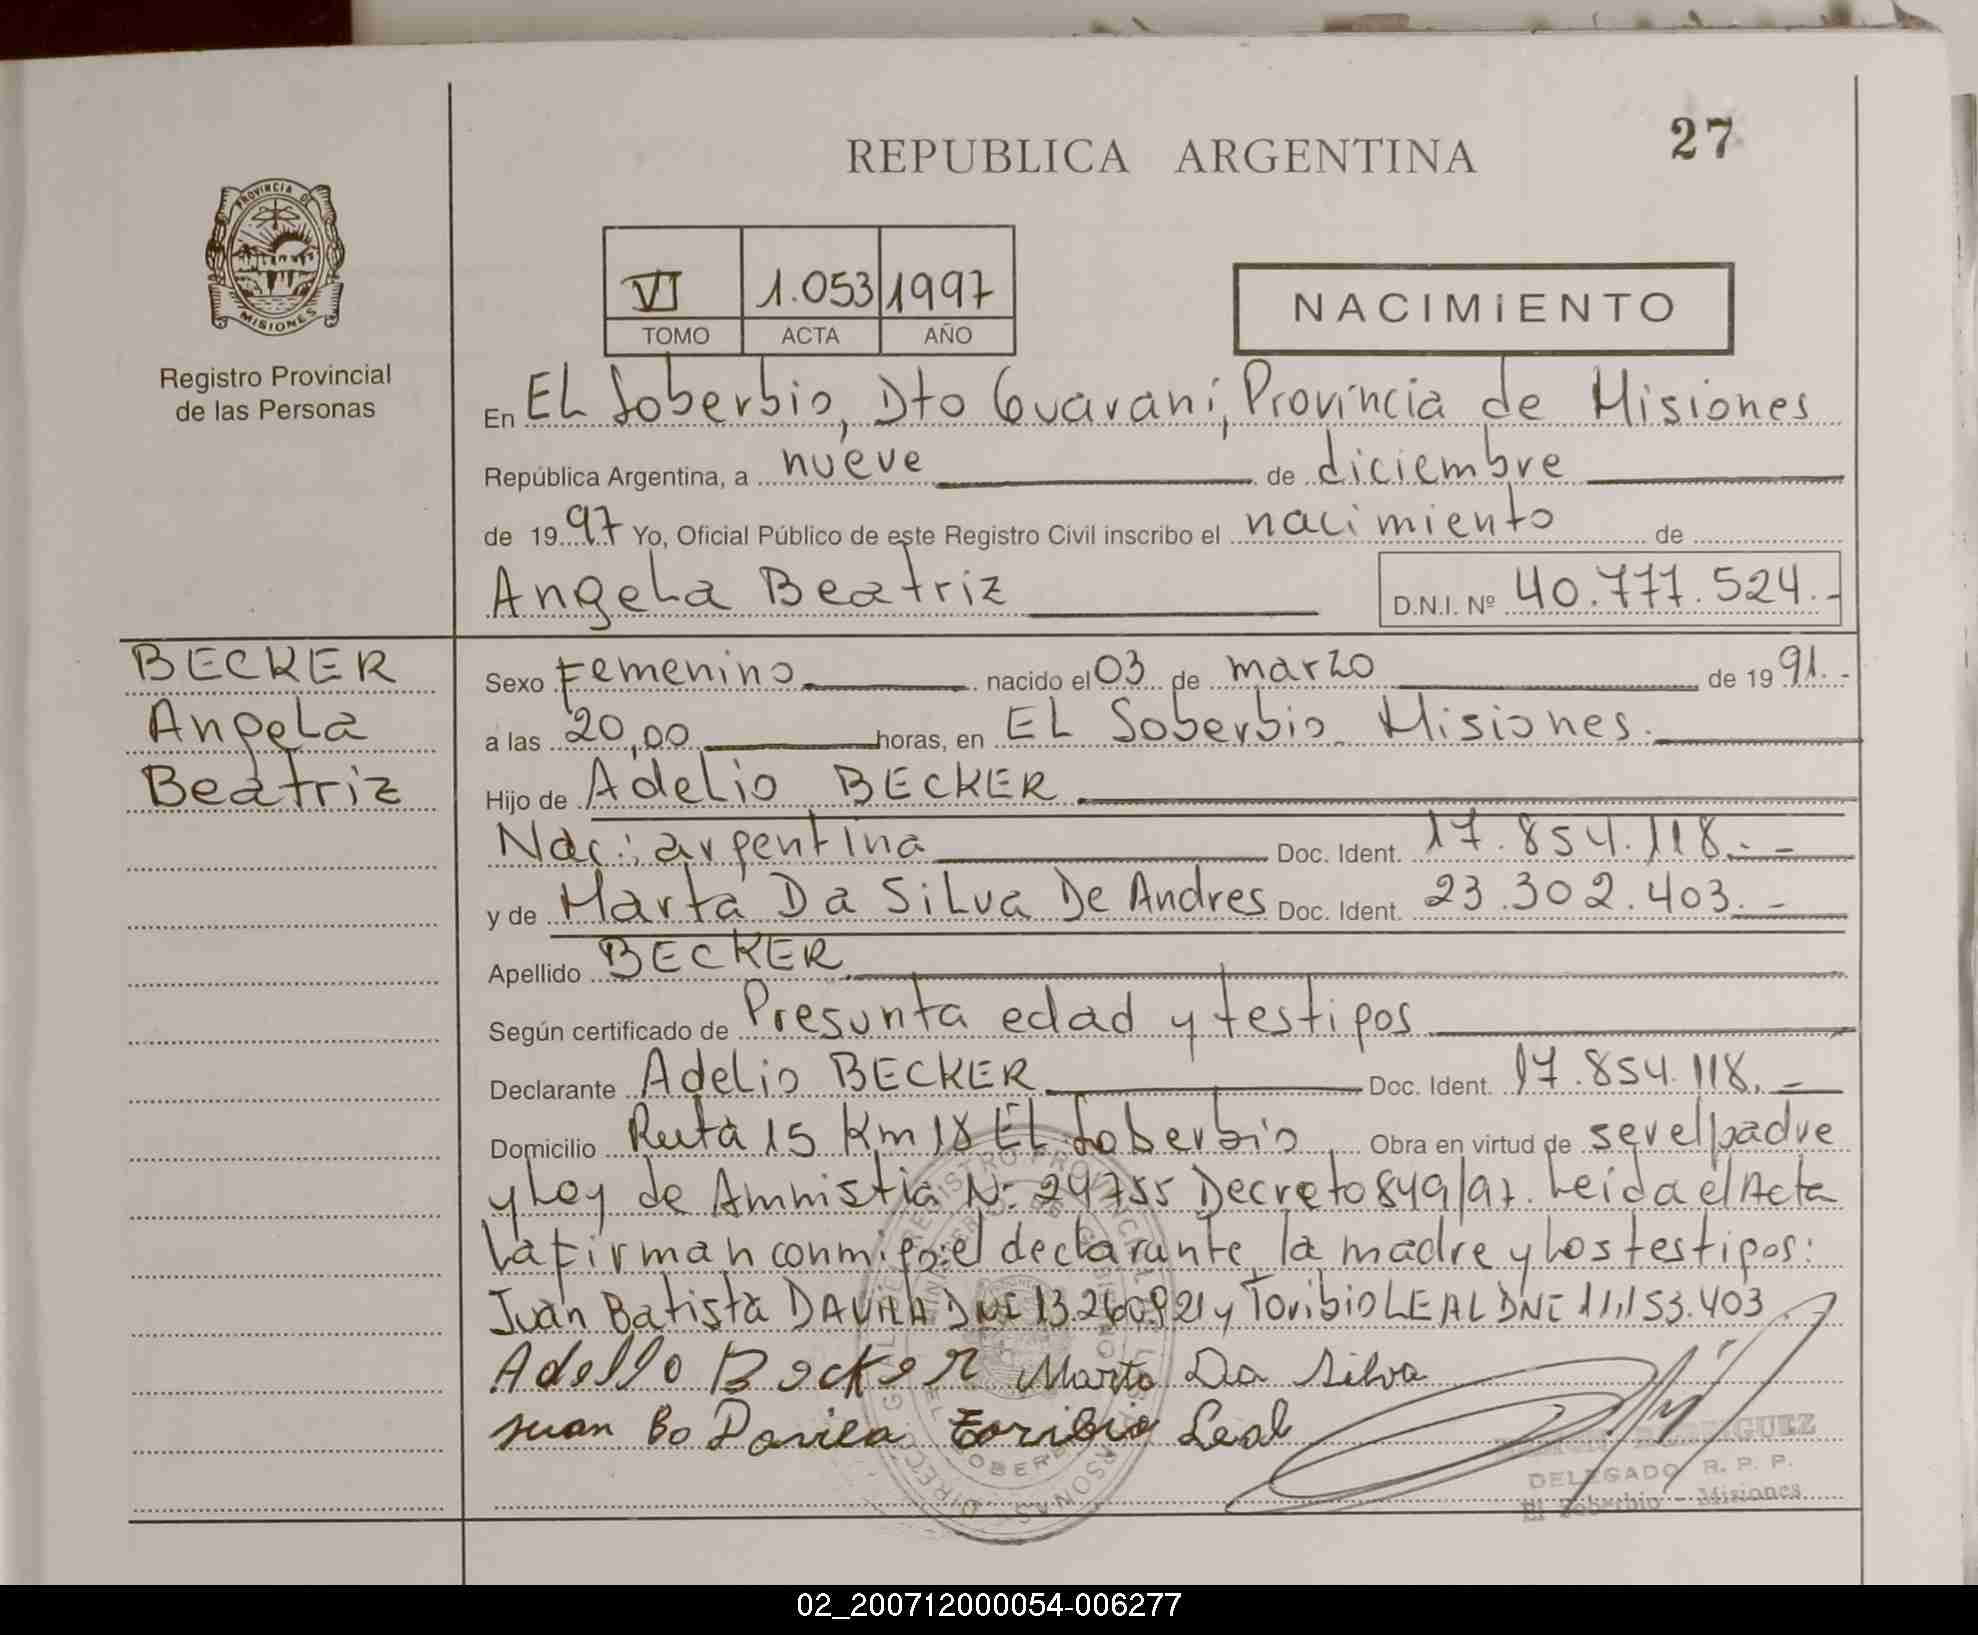 REPUBLICA ARGENTINA
27
PROVINCIA DE
MISIONES
Registro Provincial
de las Personas
VI 1.053 1997
TOMO ACTA AÑO
NACIMIENTO
En EL Soberbio, Dto Guaraní, Provincia de Misiones
República Argentina, a nueve de diciembre
de 1997 Yo, Oficial Público de este Registro Civil inscribo el nacimiento de
Angela Beatriz D.N.I. Nº 40.777.524.-
BECKER
Angela
Beatriz
Sexo Femenino nacido el 03 de marzo de 1991.-
a las 20,00 horas, en EL Soberbio Misiones.
Hijo de Adelio BECKER
Nac: argentina Doc. Ident. 17.854.118.-
y de Marta Da Silva De Andres Doc. Ident. 23.302.403.-
Apellido BECKER
Según certificado de Presunta edad y testigos
Declarante Adelio BECKER Doc. Ident. 17.854.118.-
Domicilio Ruta 15 Km 18 EL Soberbio Obra en virtud de ser el padre
y Ley de Amnistia Nº 24755 Decreto 849/97. Leída el Acta
La firman conmigo: el declarante, la madre y los testigos:
Juan Batista DAVILA DNI 13.260.921 y Toribio LEAL DNI 11,153.403
Adelio Becker Marta Da Silva
Juan Bo Davila Toribio Leal
RODRIGUEZ
DELEGADO R. P. P.
El Soberbio - Misiones
02_200712000054-006277